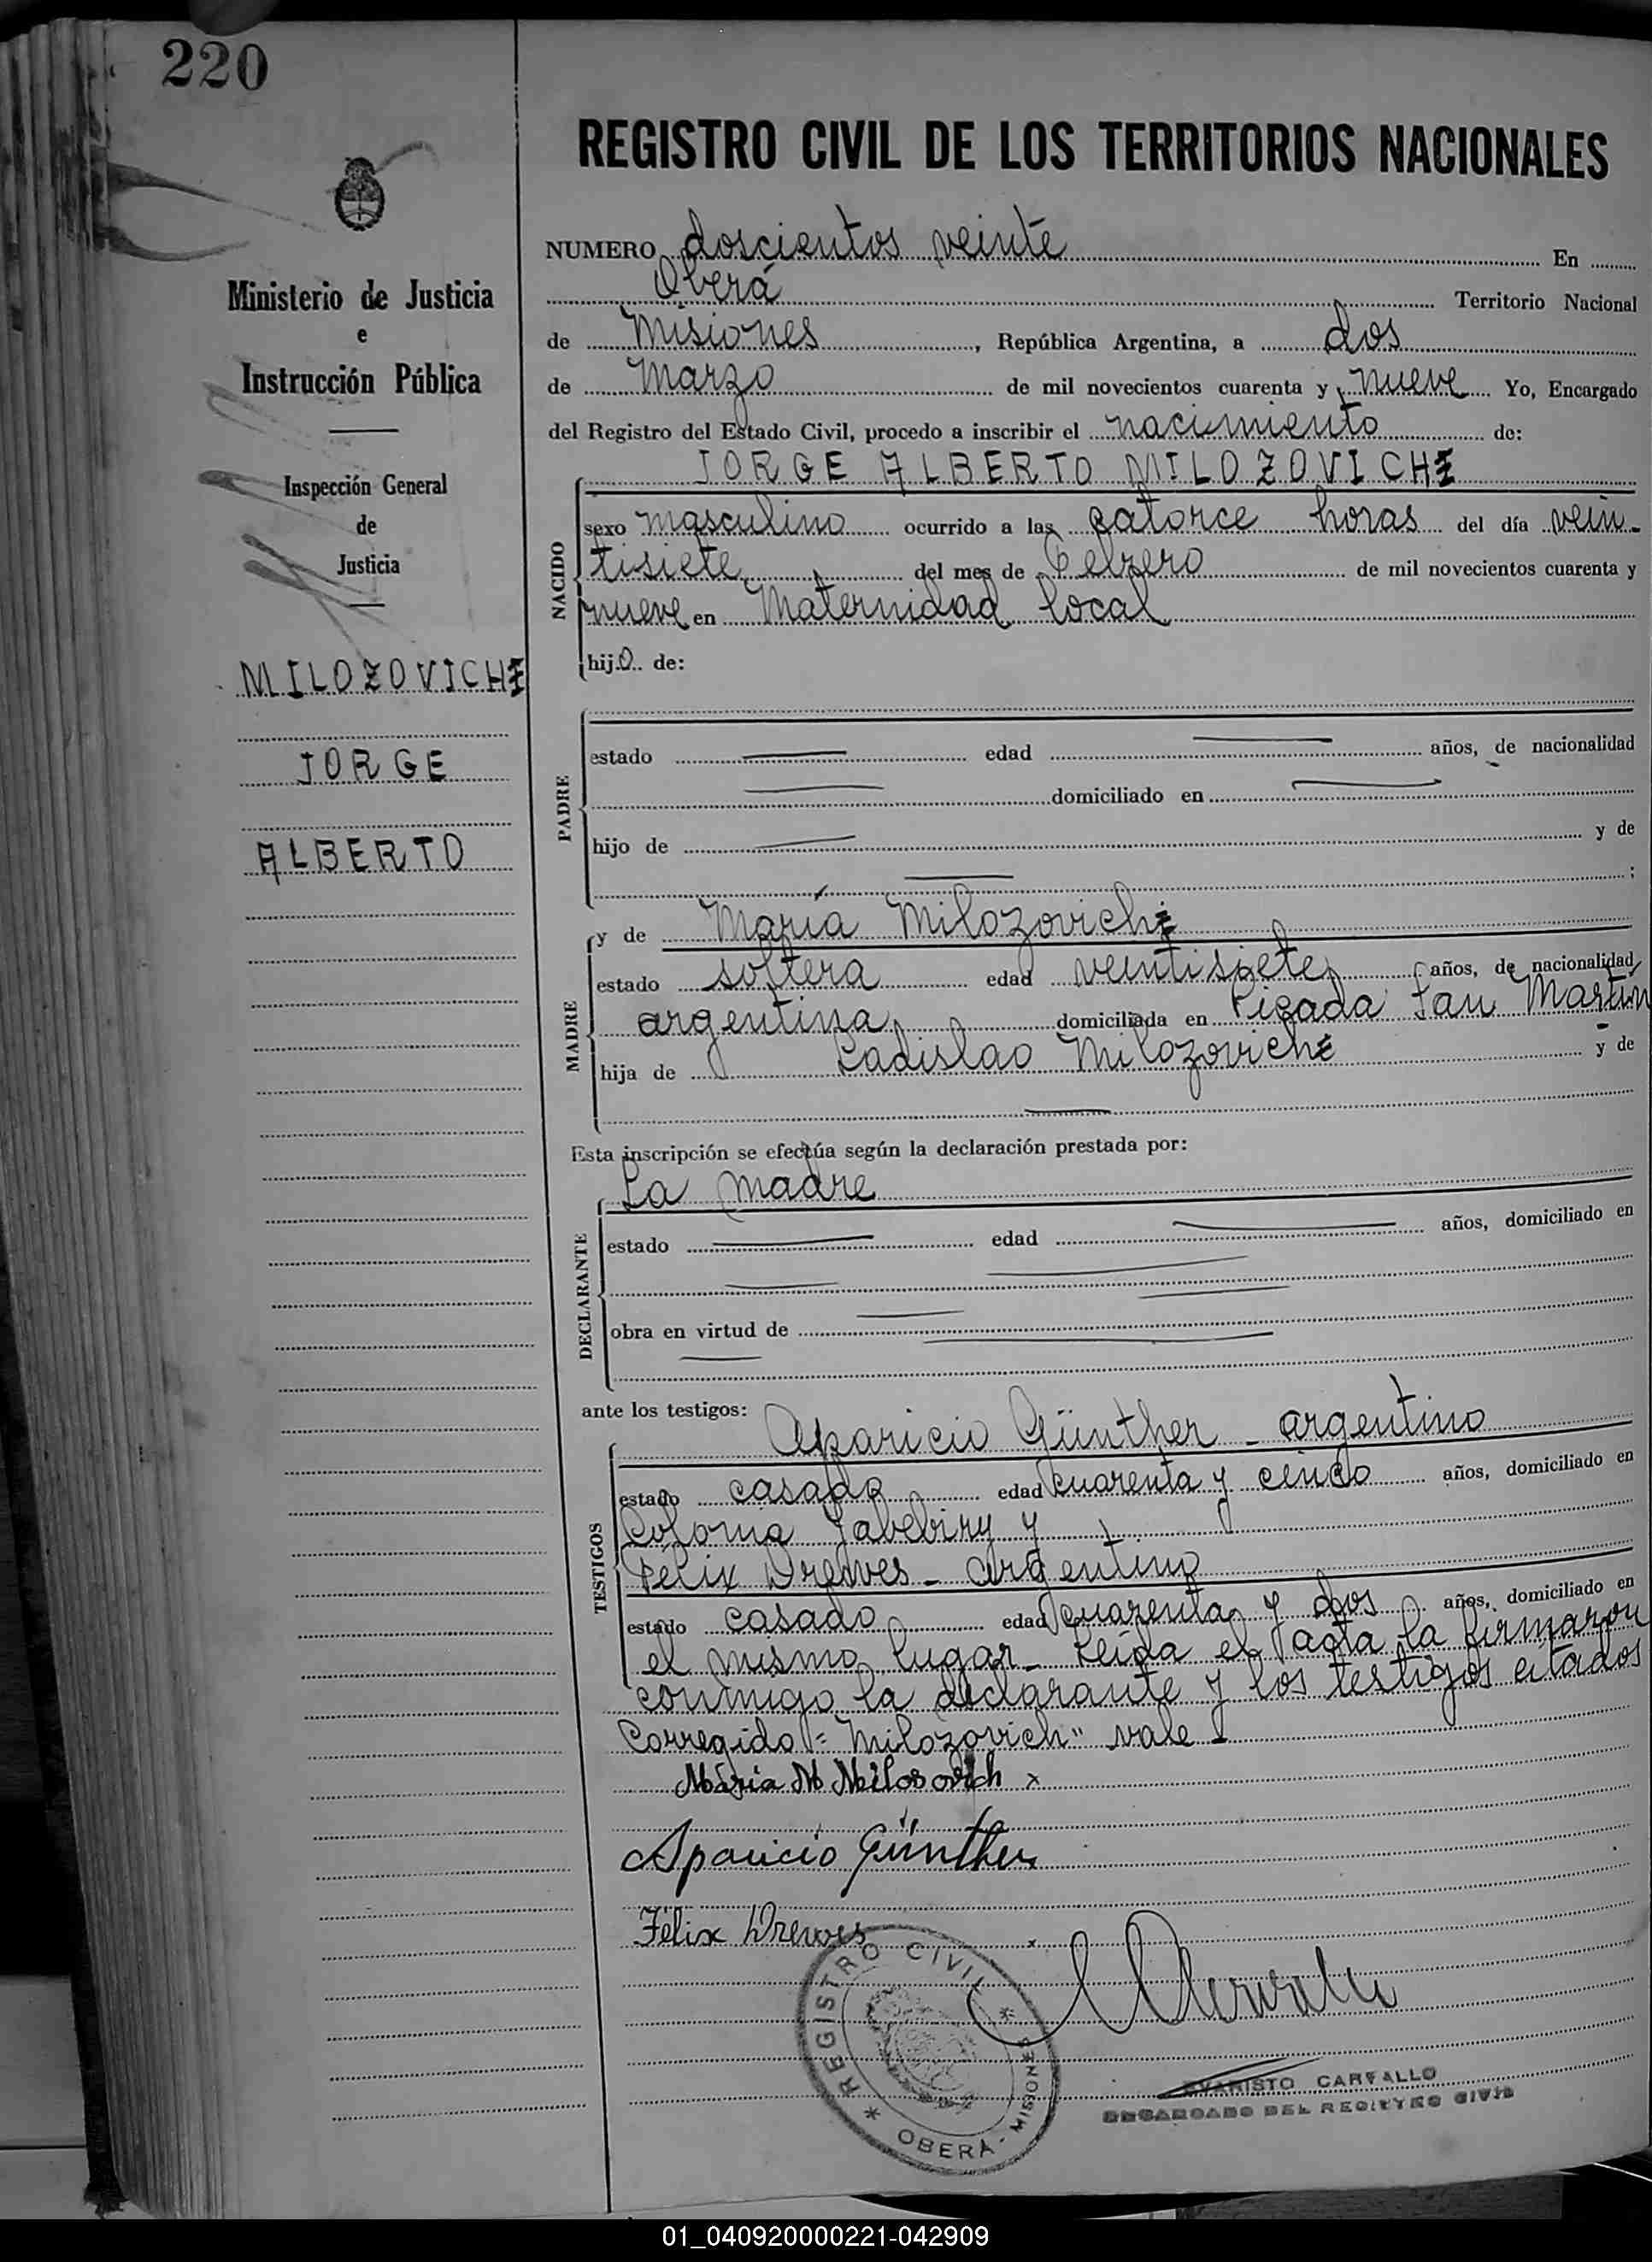 220
REGISTRO CIVIL DE LOS TERRITORIOS NACIONALES
Ministerio de Justicia
e
Instrucción Pública
Inspección General
de
Justicia
MILOZOVICH
JORGE
ALBERTO
NUMERO doscientos veinte En
Oberá Territorio Nacional
de Misiones, República Argentina, a dos
de Marzo de mil novecientos cuarenta y nueve Yo, Encargado
del Registro del Estado Civil, procedo a inscribir el nacimiento de:
JORGE ALBERTO MILOZOVICH
NACIDO
sexo masculino ocurrido a las catorce horas del día vein-
tisiete del mes de Febrero de mil novecientos cuarenta y
nueve en Maternidad local
hijo de:
PADRE
estado edad años, de nacionalidad
domiciliado en
hijo de y de
;
y de María Milozovich
MADRE
estado soltera edad veintisiete años, de nacionalidad
argentina domiciliada en Picada San Martín
hija de Ladislao Milozovich y de
Esta inscripción se efectúa según la declaración prestada por:
La madre
DECLARANTE
estado edad años, domiciliado en
obra en virtud de
ante los testigos:
Aparicio Günther - argentino
TESTIGOS
estado casado edad cuarenta y cinco años, domiciliado en
Colonia Yabebiry y
Félix Drewes - argentino
estado casado edad cuarenta y dos años, domiciliado en
el mismo lugar - Leída el acta la firmaron
conmigo la declarante y los testigos citados
Corregido = "Milozovich" vale
María M Milosovich x
Aparicio Günther
Félix Drewes
REGISTRO CIVIL * OBERÁ - MISIONES *
EVARISTO CARVALLO
ENCARGADO DEL REGISTRO CIVIL
01_040920000221-042909